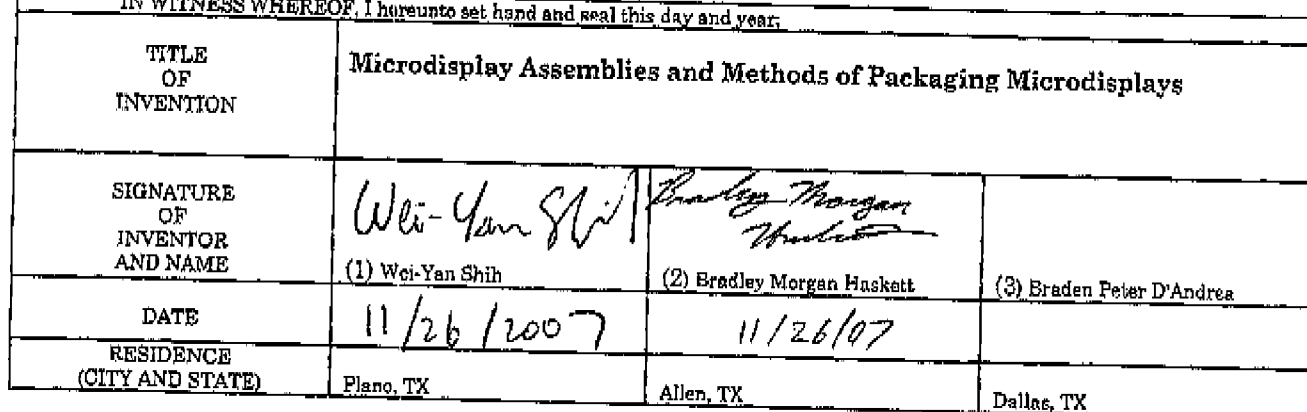 IN WITNESS WHEREOF, I hereunto set hand and seal this day and year;
TITLE
OF
INVENTION
Microdisplay Assemblies and Methods of Packaging Microdisplays
SIGNATURE
OF
INVENTOR
AND NAME
Wei-Yan Shih
Bradley Morgan
Haskett
(1) Wei-Yan Shih
(2) Bradley Morgan Haskett
(3) Braden Peter D'Andrea
DATE
11/26/2007
11/26/07
RESIDENCE
(CITY AND STATE)
Plano, TX
Allen, TX
Dallas, TX